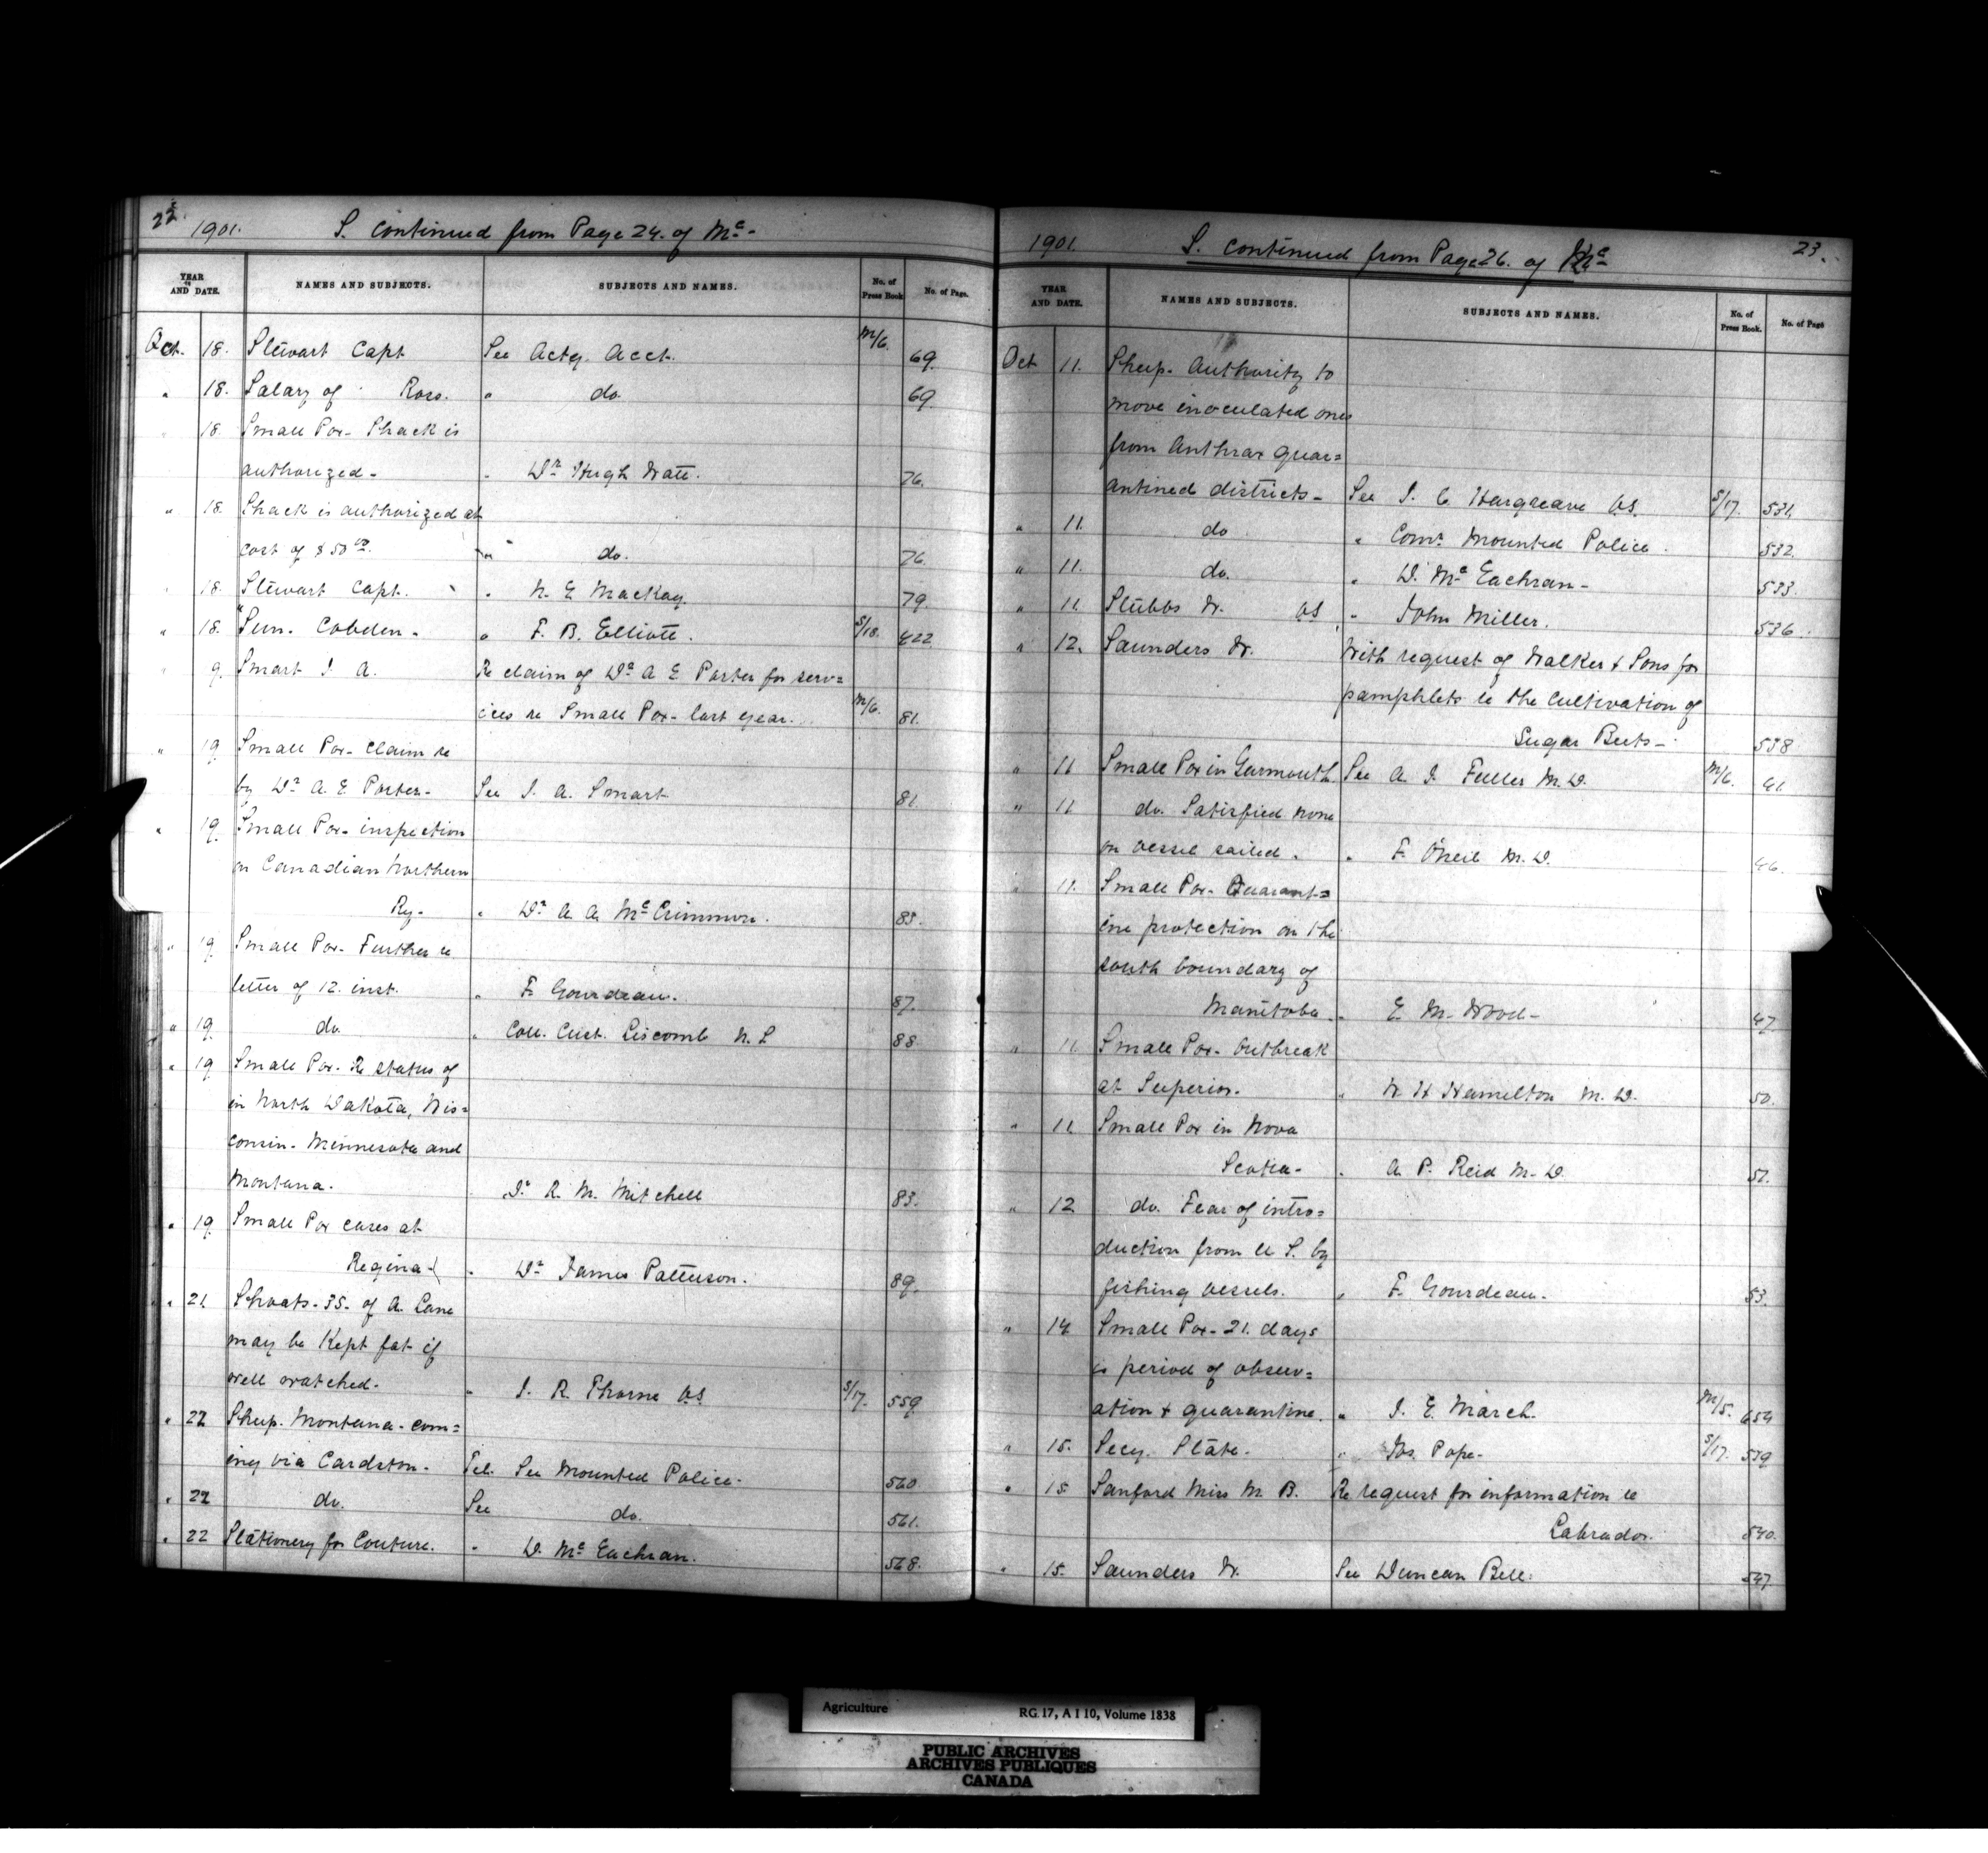 22 1901. S. continued from Page 24. of Mc-
YEAR AND DATE. NAMES AND SUBJECTS. SUBJECTS AND NAMES. No. of Press Book No. of Page.
Oct. 18. Stewart Capt See Actg. Acct. M/6. 69.
" 18. Salary of Ross. " do. 69.
" 18. Small Pox- Shack is
authorized- " Dr Hugh Watt. 76.
" 18. Shack is authorized at
cost of $50 00. " do. 76.
" 18. Stewart Capt. " N. E Mackay. 79.
" 18. "Sun. Cobden- " F. B. Elliott. S/18. 422
" 9. Smart J. A. Re claim of Dr A E Porter for serv=
ices re Small Pox- last year. M/6. 81.
" 19. Small Pox- Claim re
by Dr A. E. Porter- See J. A. Smart 81.
" 19. Small Pox- inspection
on Canadian Northern
Ry- " Dr A A McCrimmon. 85.
" 19. Small Pox- Further re
letter of 12. inst. " F. Gourdeau. 87.
" 19. do. " Coll. Cust. Liscomb N. S 88.
" 19 Small Pox- Re status of
in North Dakota, Wis=
consin- Minnesota and
Montana. " Dr R. M. Mitchell 83.
" 19. Small Pox cases at
Regina- " Dr James Patterson. 89.
" 21. Shoats- 35- of A. Lane
may be Kept fat if
well watched- " J. R. Thorne VS. S/17. 559.
" 22 Sheep. Montana- com=
ing via Cardston- Tel. See Mounted Police- 560.
" 22 do. See do. 561.
" 22 Stationery for Couture. " D. McEachran. 568.
1901. S. continued from Page 26. of Mc 23.
YEAR AND DATE. NAMES AND SUBJECTS. SUBJECTS AND NAMES. No. of Press Book. No. of Page
Oct 11. Sheep- Authority to
move inoculated ones
from Anthrax quar=
antined districts- See J. C Hargreave VS. S/17. 531.
" 11. do " Comr Mounted Police. 532.
" 11. do. " D. McEachran- 533.
" 11 Stubbs W. VS " John Miller. 536.
" 12. Saunders W. With request of Walker & Sons for
pamphlets re the cultivation of
Sugar Beets- 538
" 11 Small Pox in Yarmouth See A. J. Fuller M. D. M/6. 41.
" 11 do. Satisfied none
on vessel sailed. " F. O'Neil M. D. 46.
" 11. Small Pox- Quarant=
ine protection on the
south boundary of
Manitoba- " E. M. Wood- 47.
" 11. Small Pox- Outbreak
at Superior. " W. H Hamilton M. D. 50.
" 11. Small Pox in Nova
Scotia- " A. P. Reid M. D. 51.
" 12 do. Fear of intro=
duction from U S. by
fishing vessels. " F. Gourdeau- 53.
" 14 Small Pox- 21. days
is period of observ=
ation & quarantine. " J. E. March. M/5. 654
" 15. Secy. State. " Jos. Pope- S/17. 539
" 15 Sanford Miss M. B. Re request for information re
Labrador. 540.
" 15. Saunders W. See Duncan Bell. 547.
Agriculture RG 17, A I 10, Volume 1838
PUBLIC ARCHIVES
ARCHIVES PUBLIQUES
CANADA